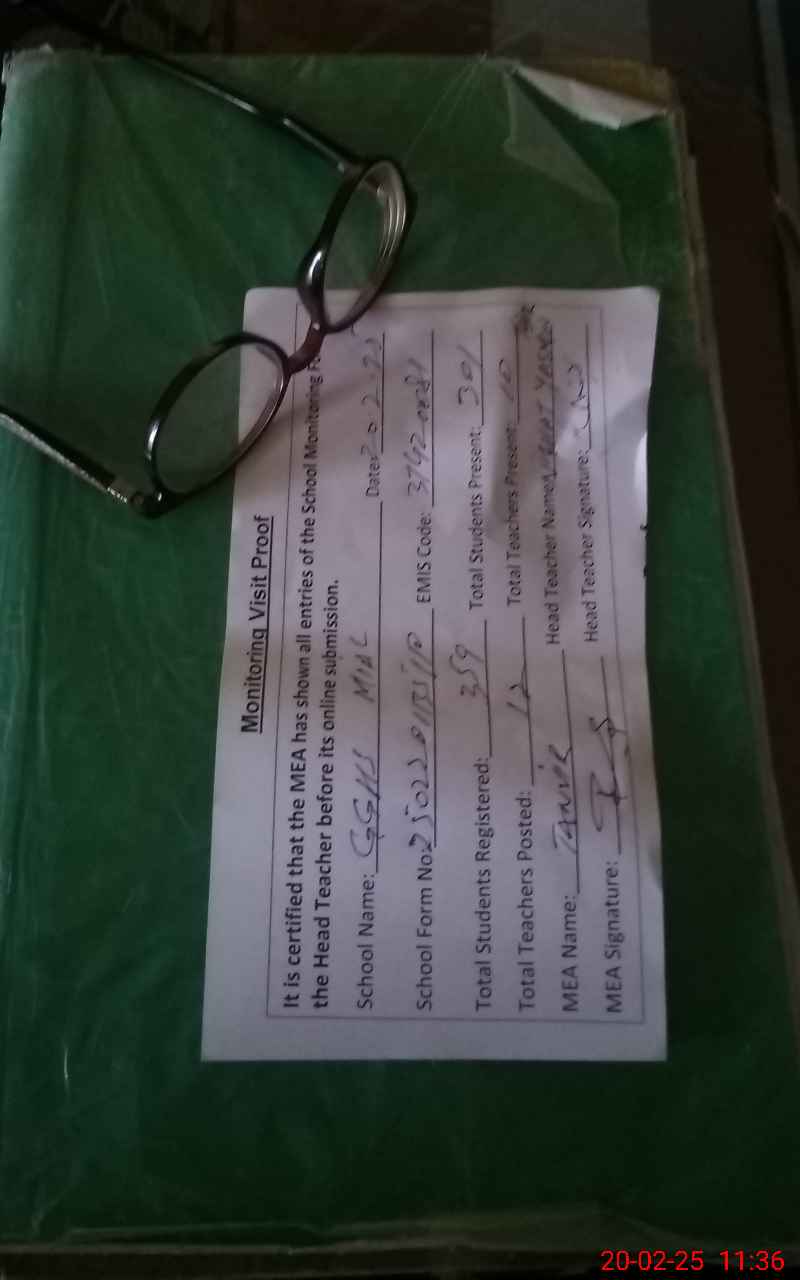 Monitoring Visit Proof
It is certified that the MEA has shown all entries of the School Monitoring
the Head Teacher before its online submission.
School Name: GGHS MIAL Date: 20.2.25
School Form No: EMIS Code:
Total Students Registered: 359 Total Students Present: 301
Total Teachers Posted: 12 Total Teachers Present: 10
MEA Name: TANVIR Head Teacher Name: YASMIN
MEA Signature: Head Teacher Signature:
20-02-25 11:36